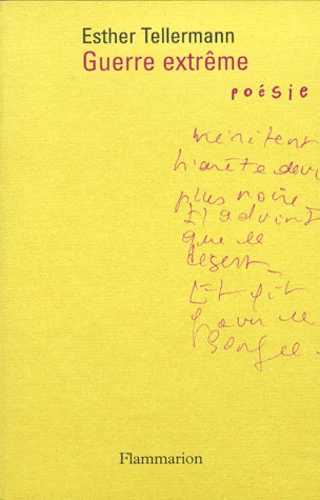 Esther Tellermann
Guerre extrême
poésie
méritent
plus noire
Il advint
que le
désert
Et fit
pour le
Flammarion